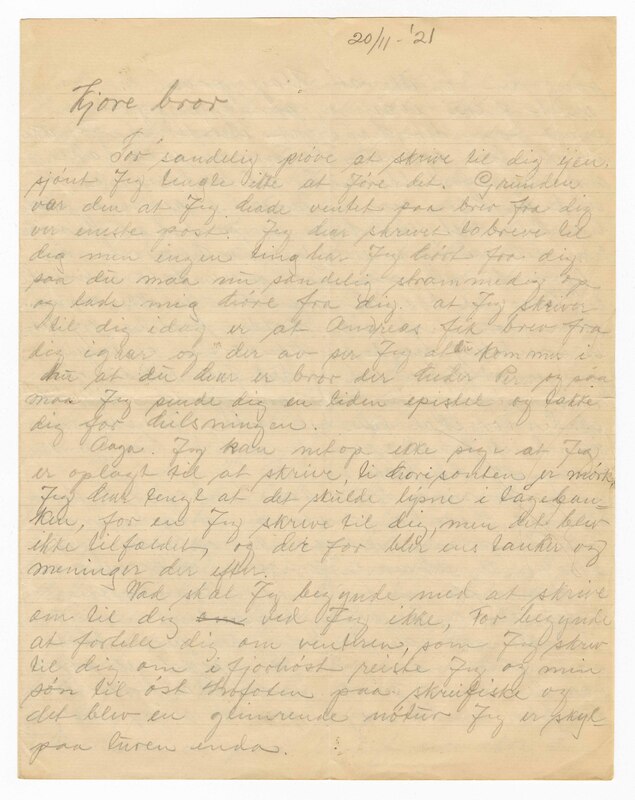 20/11-'21
Kjøre bror
Før sandelig prøve at skrive til dig ijen,
sjønt Jeg tengte ikke at jøre det. Grunden
var den at Jeg hade ventet paa brev fra dig
ver eneste post. Jeg har skrevet to breve til
dig men ingen ting har Jeg hørt fra dig
saa du maa nu sandelig stramme dig op
og lade mig høre fra dig. at Jeg skriver
til dig idag er at Andreas fik brev fra
dig igaar og der av ser Jeg at du kommer i
hu at du har er bror der heder Per og saa
maa Jeg sende dig en liden epistel og takke
dig for hilsningen.
Aaga. Jeg kan netop ikke sige at Jeg
er oplagt til at skrive, ti horisonten er mørk,
Jeg har tengt at det skulde lysne i tågeban-
ken, for en Jeg skrive til dig, men det blev
ikke tilfældet, og der for blir ens tanker og
meninger der efter.
Vad skal Jeg begynde med at skrive
om til dig om ved Jeg ikke, For begynde
at fortelle dig om venteren, som Jeg skrev
til dig om i fjorhøst reiste Jeg og min
søn til øst Lofoten paa skreifiske og
det blev en glimrende nötur Jeg er skyl-
paa turen enda.